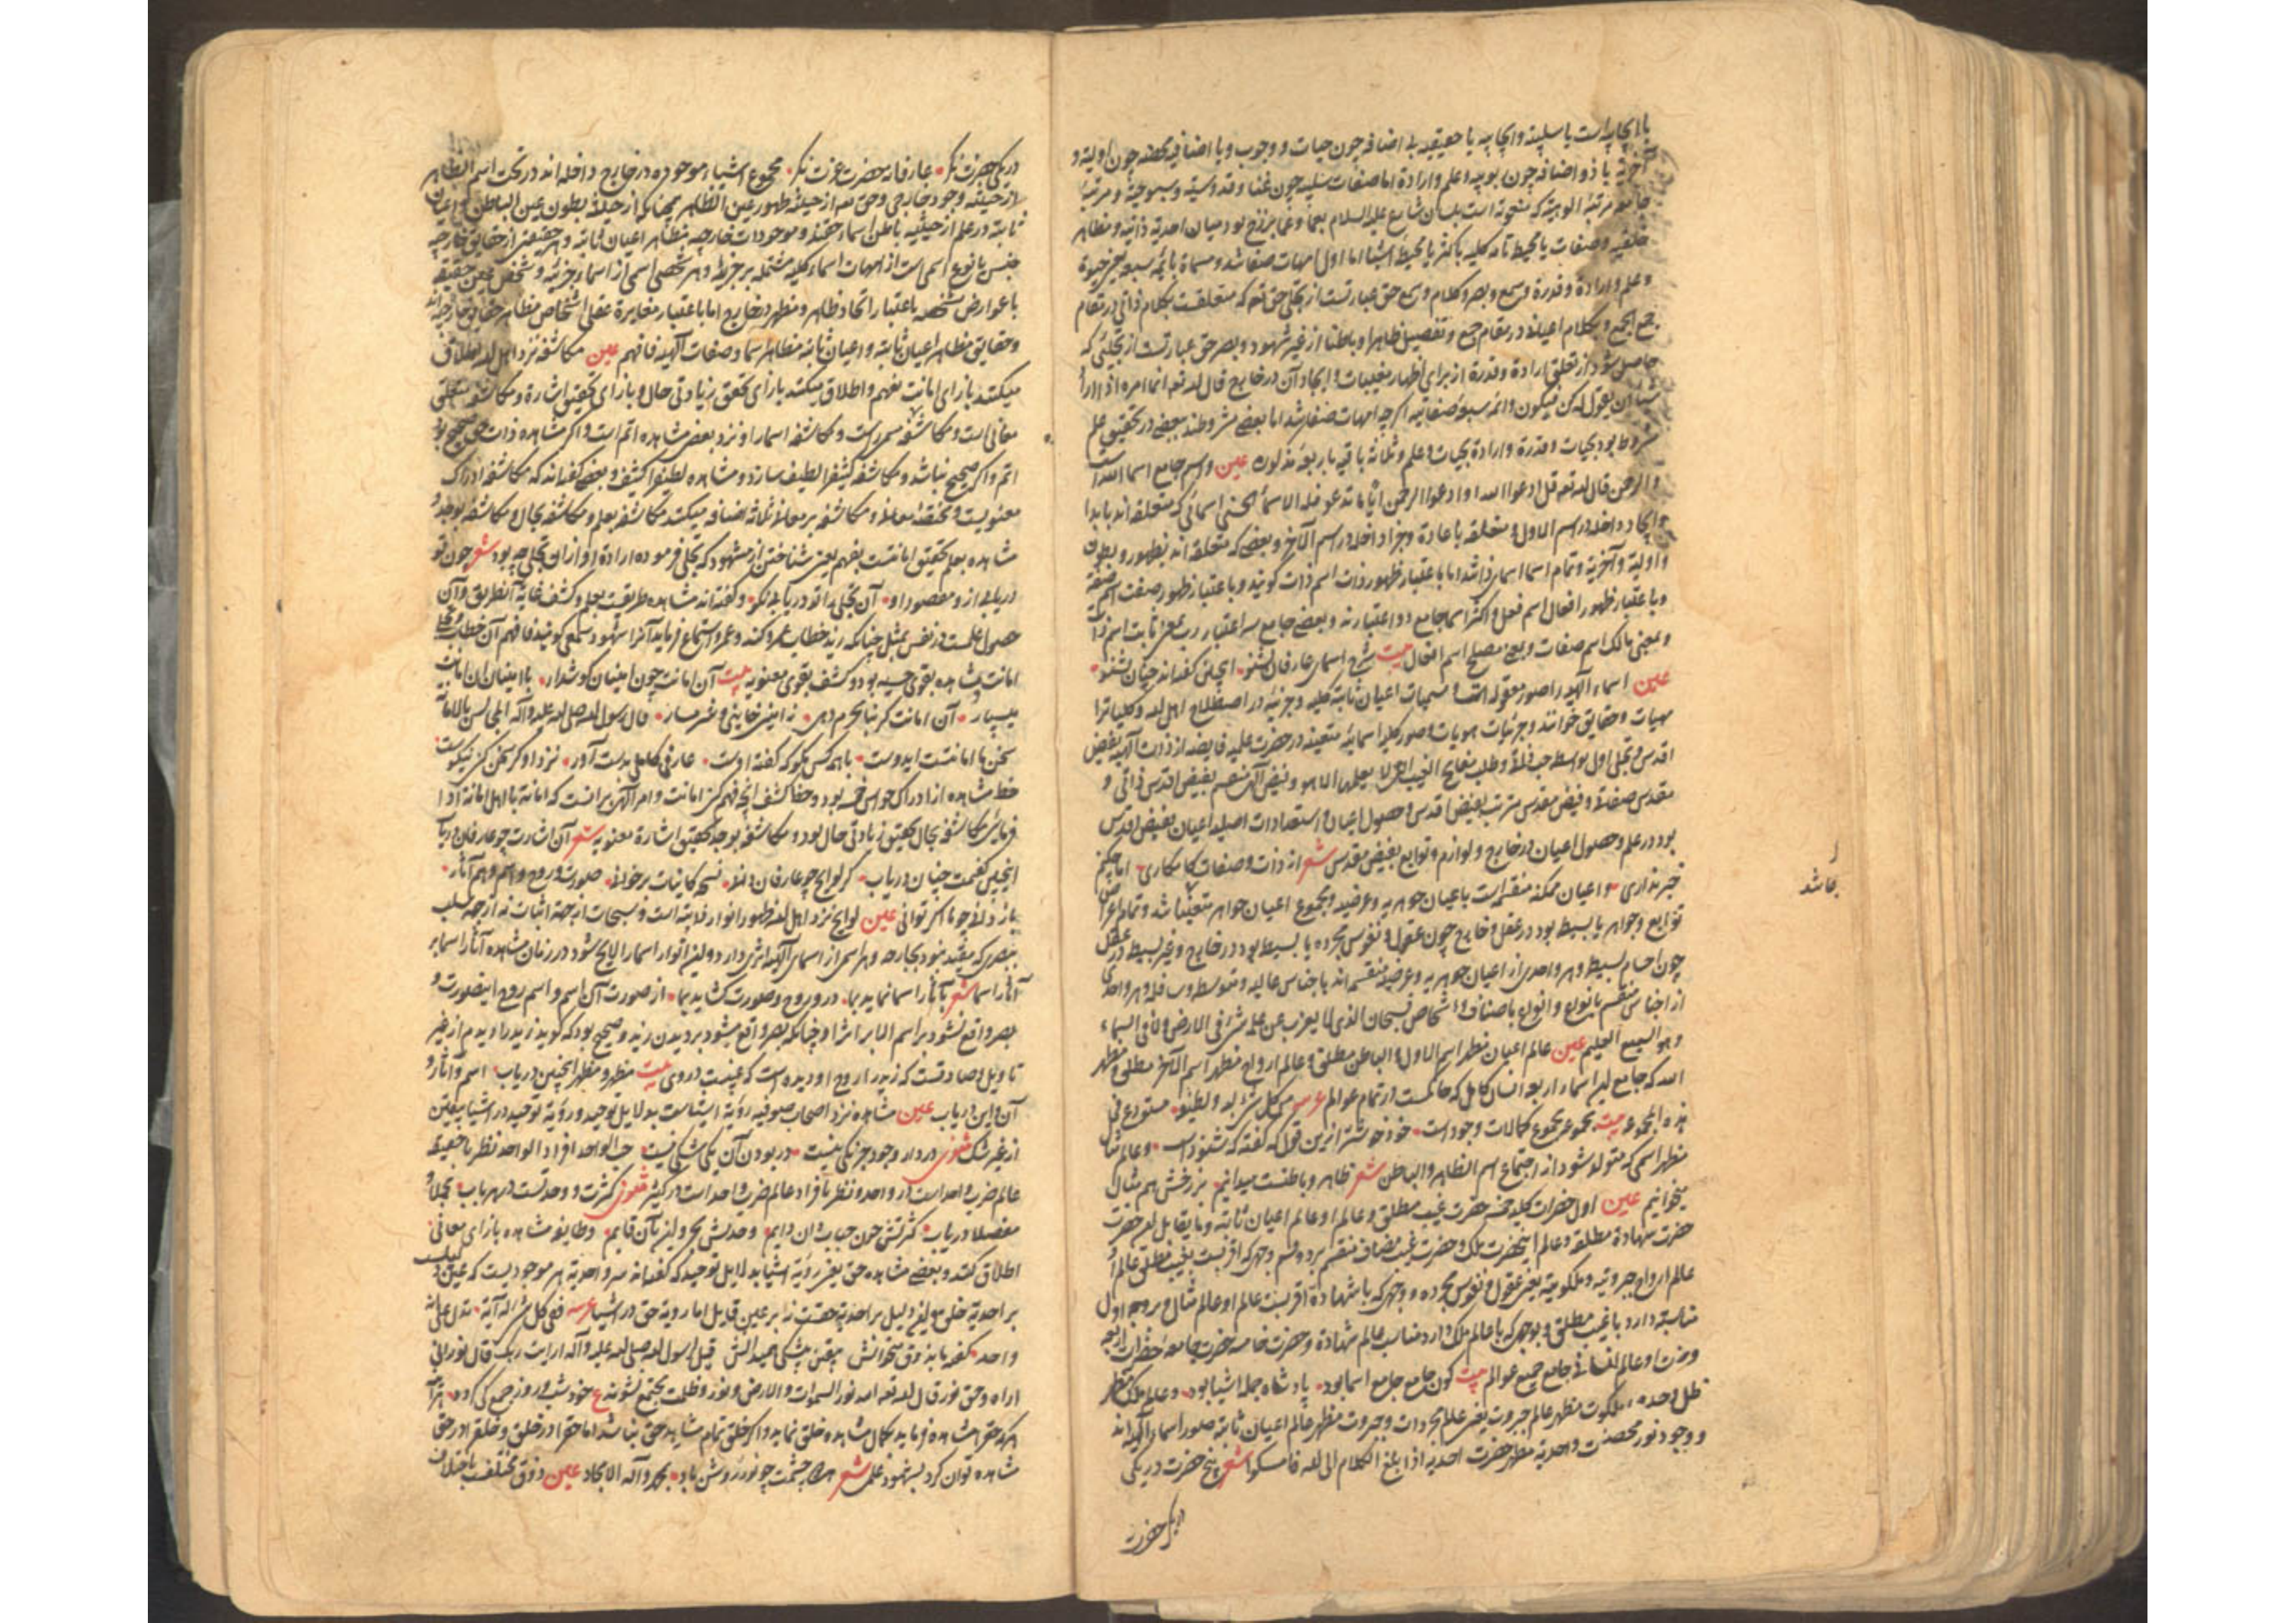 یا ایجابیه است یا سلبیه و ایجابیه یا حقیقیه بی اضافه چون حیات و وجوب و یا اضافیه محضه چون اولیة و
آخریة یا ذو اضافه چون ربوبیه و علم و ارادة اما صفات سلبیه چون غنا و قدوسیة و سبوحیة و مرتبهٔ
جامعه مرتبهٔ الوهیة که منعوته است بلسان شارع علیه السلام بعما و عما برزخ بود میان احدیة ذاتیه و مظاهر
خلقیه و صفات یا محیط تامه کلیه یا کثر یا محیط اشیا اما اول امهات صفا شد و مسماة بائمه سبعه یعنی حیوة
و علم و ارادة و قدرة و سمع و بصر و کلام و سمع حق عبارتست از تجلی حق تعه که متعلقست بکلام ذاتی در مقام
جمع الجمع و بکلام اعیانی در مقام جمع و تفصیل ظاهرا و باطنا از غیر شهود و بصر حق عبارتست از تجلیٔ که
حاصل شود از تعلق ارادة و قدرة از برای اظهار مغیبات و ایجاد آن در خارج قال الله تعه انما امره اذا اراد
شیا ان یقول له کن فیکون و ائمه سبعهٔ صفاتیه اگرچه امهات صفا شد اما بعضی مشروطند ببعضی در تحقیق علم
مشروط بود بحیات و قدرة و ارادة بحیات و علم و ثلاثه باقیه باربعه مذکوره عین و اسم جامع اسما الله است
و الرحمن قال الله تعه قل ادعوا الله او ادعوا الرحمن ایا ما تدعو فله الاسماء الحسنی اسمائی که متعلقه اند بابدا
و ایجاد داخله در اسم الاول و متعلقه باعادة و جزا داخله در اسم الآخر و بعضی که متعلقه اند بظهور و بطون
و اولیة و آخریة و تمام اسما اسمای ذاشد اما باعتبار ظهور ذات اسم ذات گویند و باعتبار ظهور صفت اسم صفة
و باعتبار ظهور افعال اسم فعل و اکثر اسما جامع دو اعتبارند و بعضی جامع سه اعتبار رب بمعنی ثابت اسم ذات
و بمعنی مالک اسم صفات و بمعنی مصلح اسم افعال بیت شرح اسمای عارفان بشنو اینچنین گفته اند چنان بشنو
عین اسماء آلهیه را صور معقوله است و مسمیات اعیان ثابته کلیه و جزئیه در اصطلاح اهل الله و کلیات را
مهیات و حقایق خوانند و جزئیات هویات و صور کلیه اسمایهٔ متعینه در حضرت علمیه فایضه از ذات آلهیه بفیض
اقدس و تجلی اول بواسطه حب ذاتی و طلب مفاتح الغیب التی لا یعلمها الا هو و فیض آلهی منقسم بفیض اقدس ذاتی و
مقدس صفاتی و فیض مقدس مترتب بفیض اقدس و حصول اعیان و استعدادات اصلیه اعیان بفیض اقدس
بود در علم و حصول اعیان در خارج و لوازم و توابع بفیض مقدس شعر از ذات و صفات کامکاری اما چکنم
خبر نداری و اعیان ممکنه منقسم است باعیان جوهریه و عرضیه و مجموع اعیان جواهر متبوعه باشد و تمام اعراض
توابع و جواهر یا بسیط بود در عقل و خارج چون عقول و نفوس مجرده یا بسیط بود در خارج و غیر بسیط در عقل
چون اجسام بسیط و هر واحدی از اعیان جوهریه و عرضیه منقسم اند باجناس عالیه و متوسطه و سافله و هر واحدی
از اجناس منقسم بانواع و انواع باصناف و اشخاص فسبحان الذی لا یعزب عن علمه شئ فی الارض و لا فی السماء
و هو السمیع العلیم عین عالم اعیان مظهر اسم الاول و الباطن مطلق و عالم ارواح مظهر اسم الآخر مطلق و مظهر
الله که جامع این اسما اربعه انسان کامل که حاکمست در تمام عوالم
هذه المجموعه بیت مجموعه مجموع کمالات وجود است خود خوشتر ازین قول که گفته که شنودست و عالم مثال
مظهر اسمی که متولد شود از اجتماع اسم الظاهر و الباطن شعر ظاهر و باطنست میدانیم برزخش هم مثال
میخوانیم عین اول حضرات کلیه خمسه حضرت غیب مطلق و عالم او عالم اعیان ثابته و ما یقابل له حضرت
حضرت شهادة مطلقه و عالم اینحضرت ملک و حضرت غیب مضاف منقسم بر دو قسم وجهی که اقربست بغیب مطلق عالم او
عالم ارواح جبروتیه و ملکوتیه یعنی عقول و نفوس مجرده و وجهی که باشهادة اقربست عالم او عالم مثال و بوجه اول
مناسبة دارد باغیب مطلق و بوجهی که باعالم ملک دارد مناسب عالم شهادة و حضرت خامسه حضرت جامعهٔ حضرات اربعه
و عالم انسانی جامع جمیع عوالم بیت کون جامع جامع اسما بود پادشاه جمله اشیا بود و عالم ملک مظهر
ملکوت مظهر عالم جبروت یعنی عالم مجردات و جبروت مظهر عالم اعیان ثابته صور اسما آلهی اند
و وجود نور و احدیه مظهر حضرت احدیه اذا بلغ الکلام الی الله فامسکوا شعر پنج حضرت در یکی
باشد
در یکی حضرت
در یکی حضرت نگر عارفانه حضرت عزت نگر مجموع اشیاء موجوده در خارج داخله اند در تحت اسم الظاهر
از حیثیة وجود خارجی و حق تعه از حیثیة ظهور عین الظاهر همچنانکه از حیثیة بطون عین الباطن و اعیان
ثابته در علم از حیثیه باطن اسماء حقند و موجودات خارجیه مظاهر اعیان ثابته و هر حقیقتی از حقایق خارجیه
جنس یا نوع اسمی است از امهات اسماء کلیه مشتمله بر جزئیه و هر شخصی اسمی از اسماء جزئیه و شخص عین حقیقه
باعوارض مشخصه باعتبار اتحاد ظاهر و مظهر در خارج اما باعتبار مغایرة عقلی اشخاص مظاهر حقایق خارجیه اند
و حقایق مظاهر اعیان ثابته و اعیان ثابته مظاهر اسما و صفات آلهیه فافهم عین مکاشفه نزد اهل الله اطلاق
میکنند بازای امانت بفهم و اطلاق میکنند بازای تحقق زیادتی حال و بازای تحقیق اشارة و مکاشفه متعلق
معانی است و مکاشفه سمر است و مکاشفه اسمارا و نزد بعضی مشاهده اتم است و اگر مشاهده ذات حق صحیح بود
اتم و اگر صحیح نباشد و مکاشفه کثیف را لطیف سازد و مشاهده لطیف را کثیف و بعضی گفته اند که مکاشفه ادراک
معنویست و مختصه بمعانی و مکاشفه بر معانی ثلاثه اضافه میکنند مکاشفه بعلم و مکاشفه بحال و مکاشفه بوجد و
مشاهده بعلم تحقیق امانتست بفهم یعنی شناختن از مشهود که تجلی فرموده ارادة او از ان تجلی چه بود شعر چون تو
دریابی از و مقصود او آن تجلی یافته دریاب نکو و گفته اند مشاهده طریقیست بعلم و کشف غایة آنطریق و آن
حصول علمست در نفس بمثل چنانکه زید خطاب عمرو کند و عمرو استماع فرماید آنرا شهود سمعی گویند فافهم آن خطاب
امانت مشاهده بقوی حسیه بود و کشف بقوی معنویه بیت آن امانت چون امینان گوشدار باامینان ان امانت
میسپار آن امانت گر بنامحرم دهی زامینی خاینی و شرمسار قال رسول الله صلی الله علیه و آله المجالس بالامانة
سخن ما امانتست ای دوست باهمه کس مگو که گفته اوست عارفی کاملی بدست آور نزد او گر سخن کنی نیکوست
حظ مشاهده از ادراک حواس خمسه بود و حظ کشف آنچه فهم کنی امانت و امر آلهی برانست که امانة بااهل امانة ادا
فرمای مکاشفه بحال تحقیق زیادتی حال بود و مکاشفه بوجد تحقیق اشارة معنویه شعر آن اشارت چو عارفان دریاب
اینچنین گفتمت چنان دریاب گر لوایح چو عارفان دانی نسخه کاینات برخوانی صورت و روح و اسم و هم آثار
باز دانی چو ما اگر توانی عین لوایح نزد اهل الله ظهور انوار ذاتیه است و سبحات از جهة اثبات نه از جهة سلب
ببصری که مقید نبود بجارحه و هر اسمی از اسمای آلهیه اثری دارد و این انوار اسما را لایح شود در زمان مشاهده آثار اسما بر
آثار اسما شعر آثار اسما نماید بما در و روح و صورت گشاید بما از صورت آن اسم و اسم روح اینصورت و
بصر واقع نشود بر اسم الا بر اثر او چنانکه بصر واقع میشود بر دیدن زید و صحیح بود که گوید زید را دیدم از غیر
تاویل و صادقست که زید را روح او دیده است که غیبست در وی بیت مظهر و مظهر اینچنین دریاب اسم و آثار و
آن و این دریاب عین مشاهده نزد اصحاب صوفیه رؤیة اشیاست بدلایل توحید و رؤیة توحید در اشیا بیقین
از غیر شک مثنوی در دار وجود جز یکی نیست در بودن آن یکی شکی نیست حب الواحد افراد الواحد نظر باحقیقة
عالم ضرب واحد است در واحد و نظر بافراد عالم ضرب واحد است در کثیر مثنوی کثرت و وحدتست در هر باب مجملا و
مفصلا دریاب کثرتش چون حباب دان دایم وحدتش بحر و این بآن قایم و طایفه مشاهده بازای معانی
اطلاق کنند و بعضی مشاهده حق یعنی رؤیة اشیا بدلایل توحید که گفته اند سر واحدیة هر موجودیست که عین دلیلست
بر احدیة خلق و این دلیل بر احدیة حقست نه بر عین قایل اما رویة حق در اشیا عربیه ففی کل شئ له آیة تدل علی انه
واحد گفته ما بذوق میخوانش بیقین بیشکی همیدانش قیل لرسول الله صلی الله علیه و آله ارایت ربک قال نور انی
اراه و حق نور قال الله تعه الله نور السموات و الارض و نور و ظلمت مجتمع نشوند ع خود شب و روز جمع کی گردد
اگر حق مشاهده فرماید بکمال مشاهده خلق ننماید و اگر خلق تمام مشاهده حق نباشد اما حق را در خلق و خلق را در حق
مشاهده توان کرد بشهود علمی شعر چشمت چو نور روشن باد بمحمد و آله الامجاد عین ذوق مختلفست باختلاف